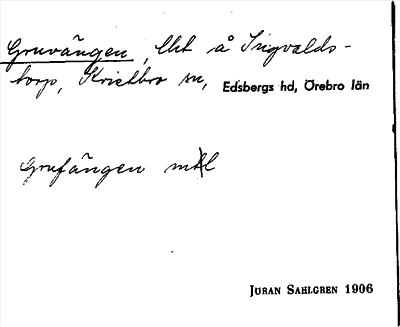 Gruvängen, lht å Ingvalds-
torp, Kvistbro sn, Edsbergs hd, Örebro län
Grufängen mkl
JÖRAN SAHLGREN 1906